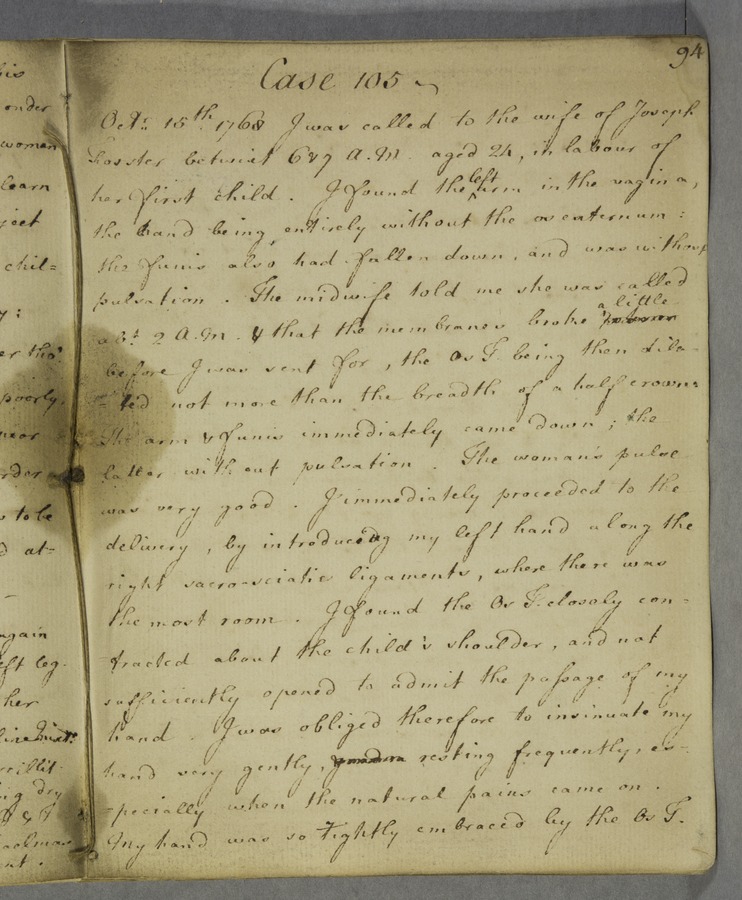 his
onder
women
learn
ject
chil=
y:
er tho'
poorly,
near
rder a
s to be
d at=
again
eft leg.
her
94
Case 105
Octr. 15th. 1768 I was called to the wife of Joseph
Fosster betwixt 6 & 7 A.M. aged 24, in labour of
her first child. I found the left arm in the vagina,
the hand being entirely without the os externum:
the funis also had fallen down, and was without
pulsation. The midwife told me she was called
abt. 2 A.M. & that the membranes broke a little
before I was sent for, the Os T. being then dila-
-ted not more than the breadth of a half crown:
The arm & funis immediately came down; the
latter without pulsation. The woman's pulse
was very good. I immediately proceeded to the
delivery, by introducing my left hand along the
right sacro-sciatic ligaments, where there was
the most room. I found the Os T. closely con=
tracted about the child's shoulder, and not
sufficiently opened to admit the passage of my
hand. I was obliged therefore to insinuate my
hand very gently, resting frequently, es-
-pecially when the natural pains came on.
My hand was so tightly embraced by the Os T.